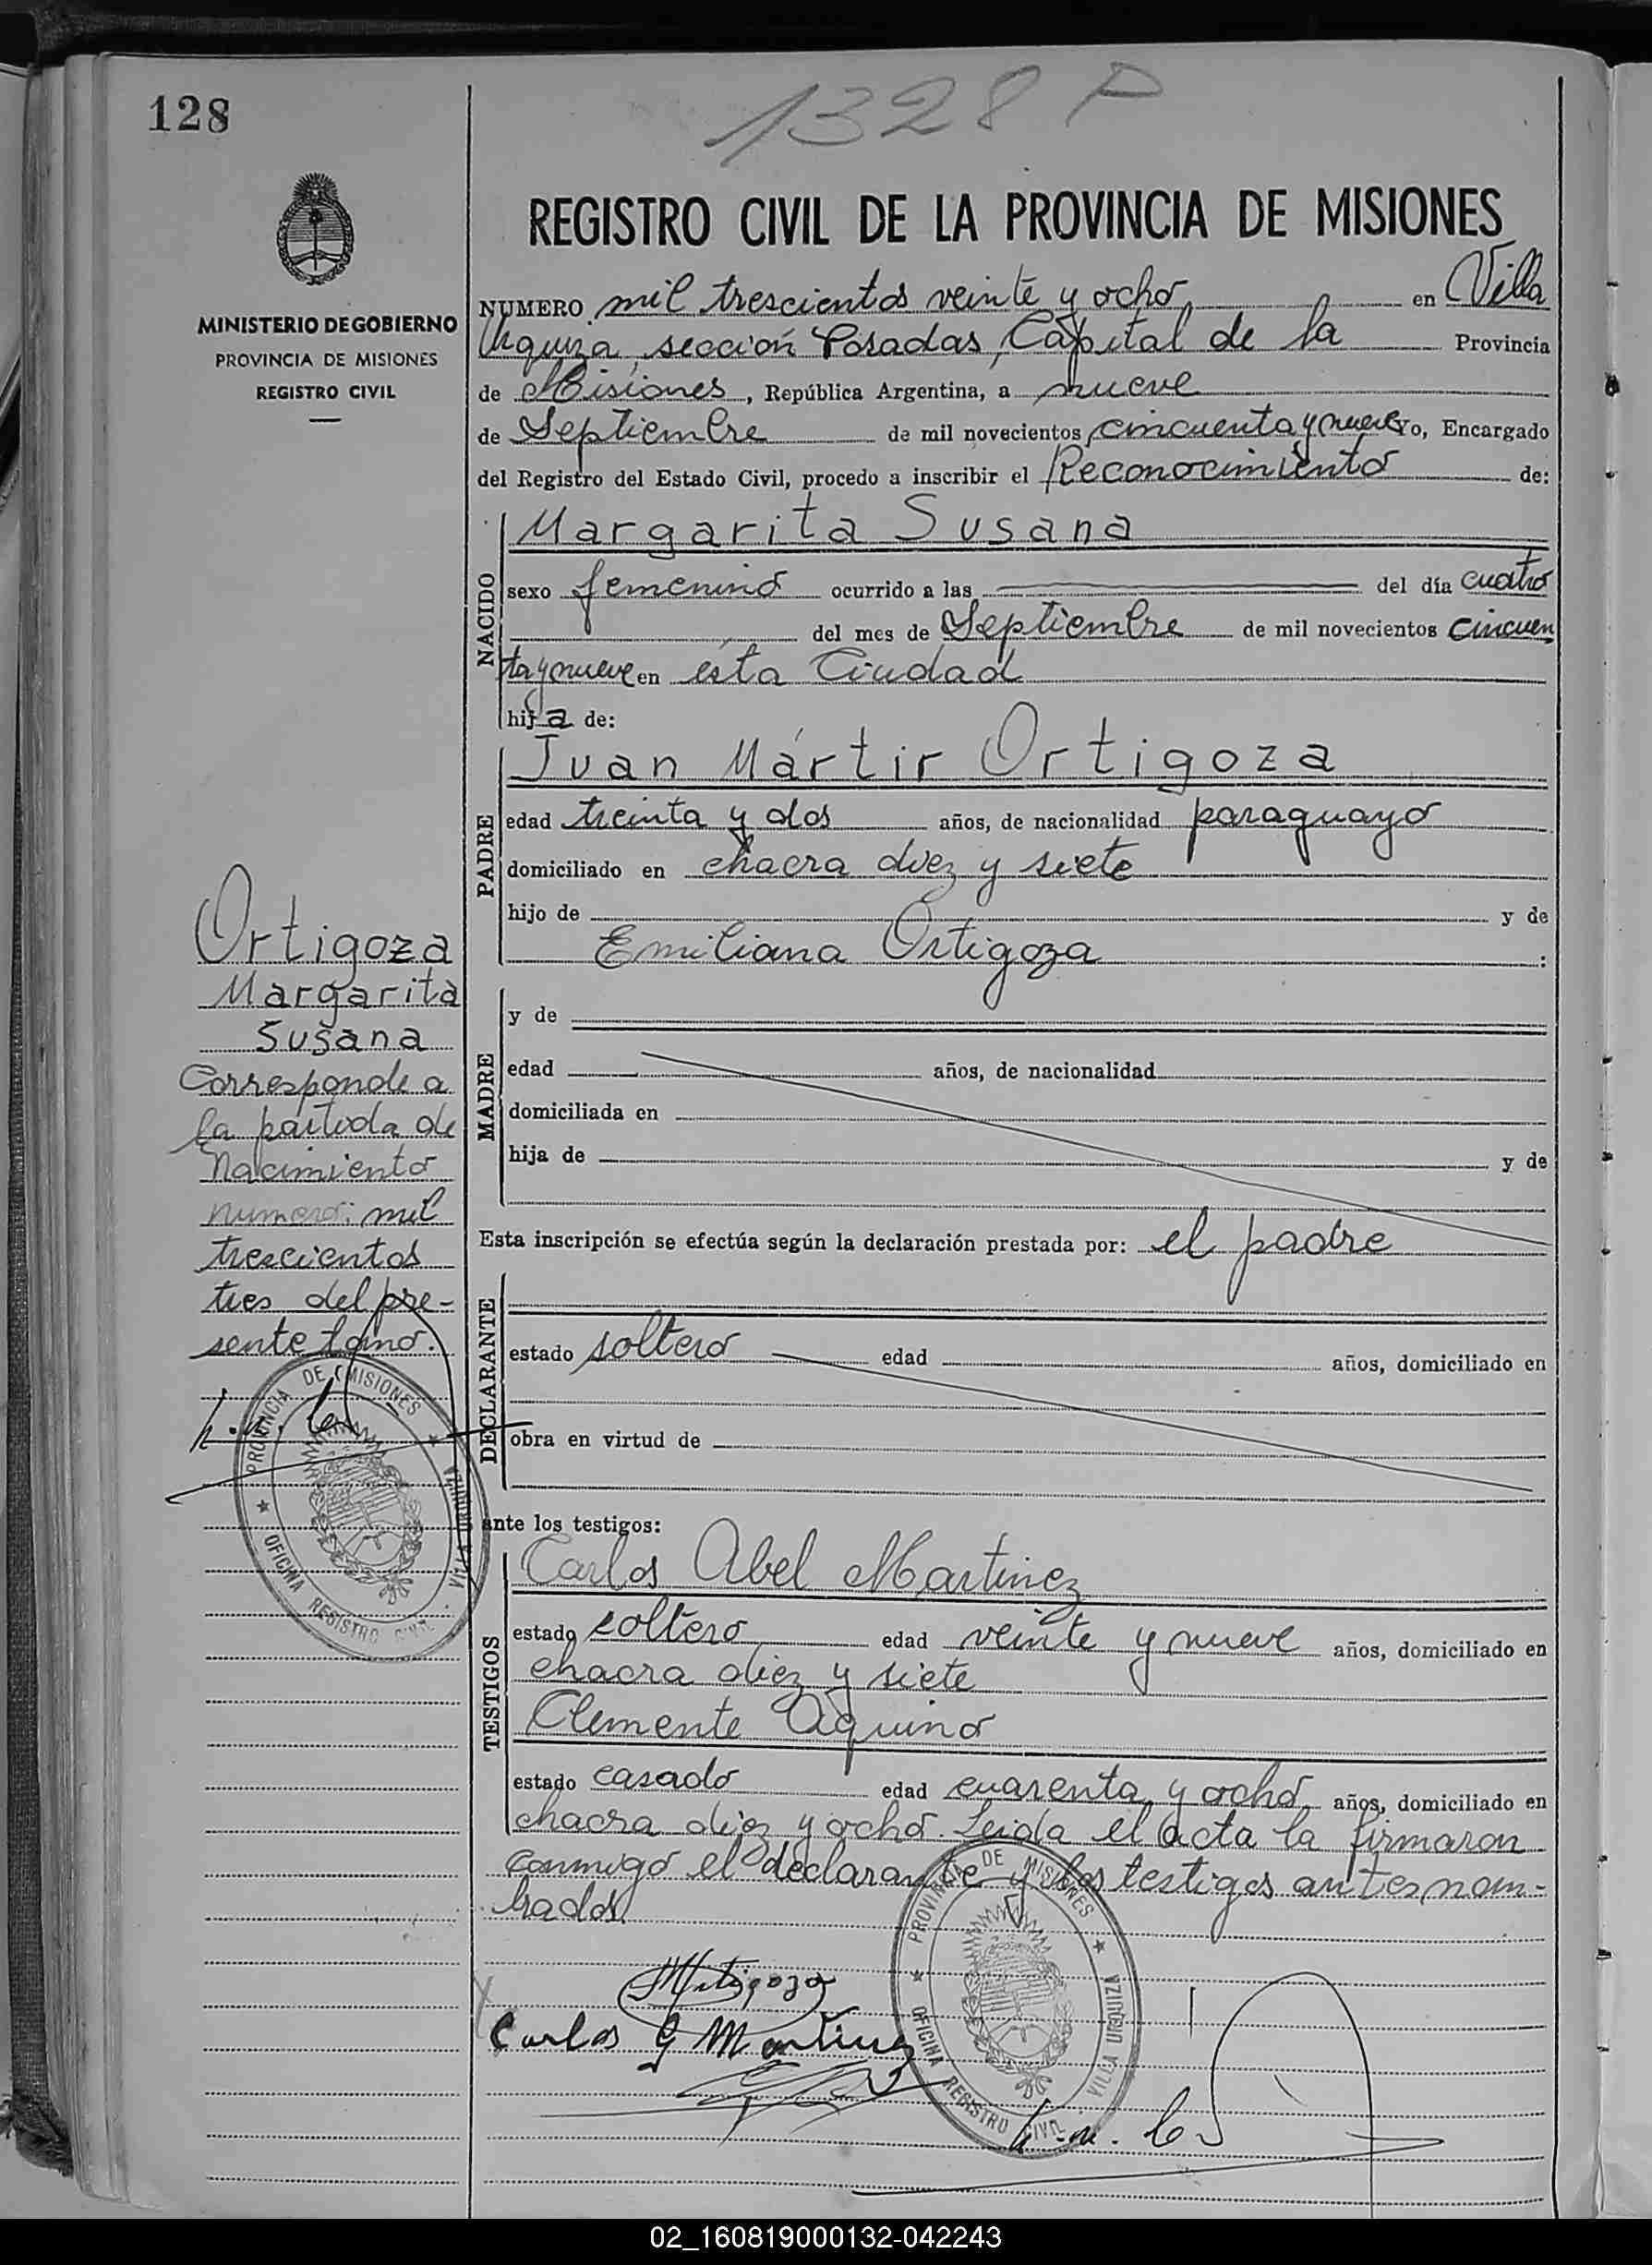 128
1328 P
REGISTRO CIVIL DE LA PROVINCIA DE MISIONES
MINISTERIO DE GOBIERNO
PROVINCIA DE MISIONES
REGISTRO CIVIL
NUMERO mil trescientos veinte y ocho, en Villa
Urquiza, sección Posadas, Capital de la Provincia
de Misiones, República Argentina, a nueve
de Septiembre de mil novecientos cincuenta y nueve yo, Encargado
del Registro del Estado Civil, procedo a inscribir el Reconocimiento de:
NACIDO
Margarita Susana
sexo femenino ocurrido a las del día cuatro
del mes de Septiembre de mil novecientos cincuen
ta y nueve en ésta Ciudad
hija de:
PADRE
Juan Mártir Ortigoza
edad treinta y dos años, de nacionalidad paraguayo
domiciliado en chacra diez y siete
hijo de y de
Emiliana Ortigoza :
MADRE
y de
edad años, de nacionalidad
domiciliada en
hija de y de
Esta inscripción se efectúa según la declaración prestada por: el padre
DECLARANTE
estado soltero edad años, domiciliado en
obra en virtud de
ante los testigos:
TESTIGOS
Carlos Abel Martinez
estado soltero edad veinte y nueve años, domiciliado en
chacra diez y siete
Clemente Aquino
estado casado edad cuarenta y ocho años, domiciliado en
chacra diez y ocho. Leida el acta la firmaron
conmigo el declarante y los testigos antes nom-
brados.
Ortigoza
Margarita
Susana
Corresponde a
la partida de
nacimiento
número: mil
trescientos
tres del pre-
sente tomo.
PROVINCIA DE MISIONES
OFICINA REGISTRO CIVIL
VILLA URQUIZA
MOrtigoza
Carlos G Martinez
PROVINCIA DE MISIONES
OFICINA REGISTRO CIVIL
VILLA URQUIZA
02_160819000132-042243